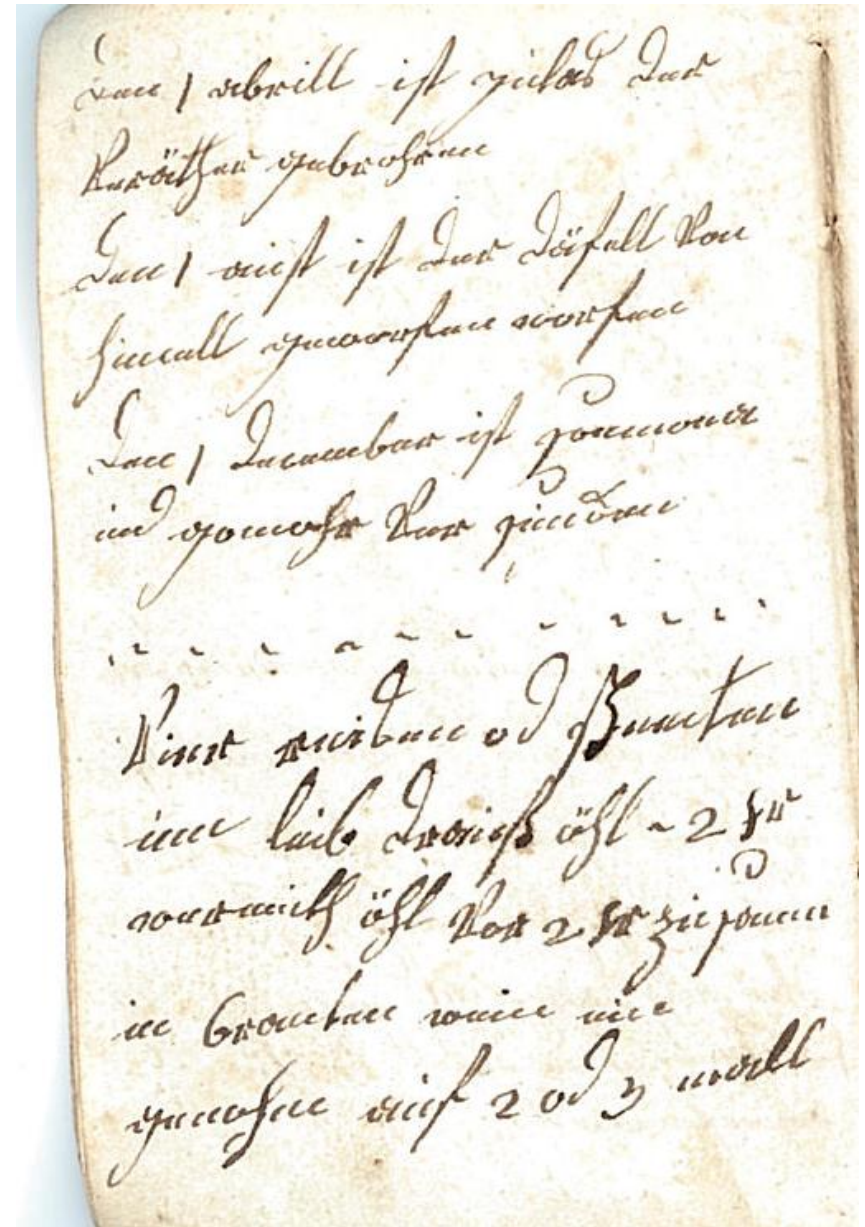 Den 1 abrill ist judas der
Veräther gebrohren
Den 1 aust ist der Däfell Von
himell geworfen worfen
Den 1 December ist
und gomohr Ver sunken
Vier od
im leib öhl - 2 xr
wermuth öhl Vor 2 xr zusamen
in branten wein ein
genohme auf 2 od 3 mall